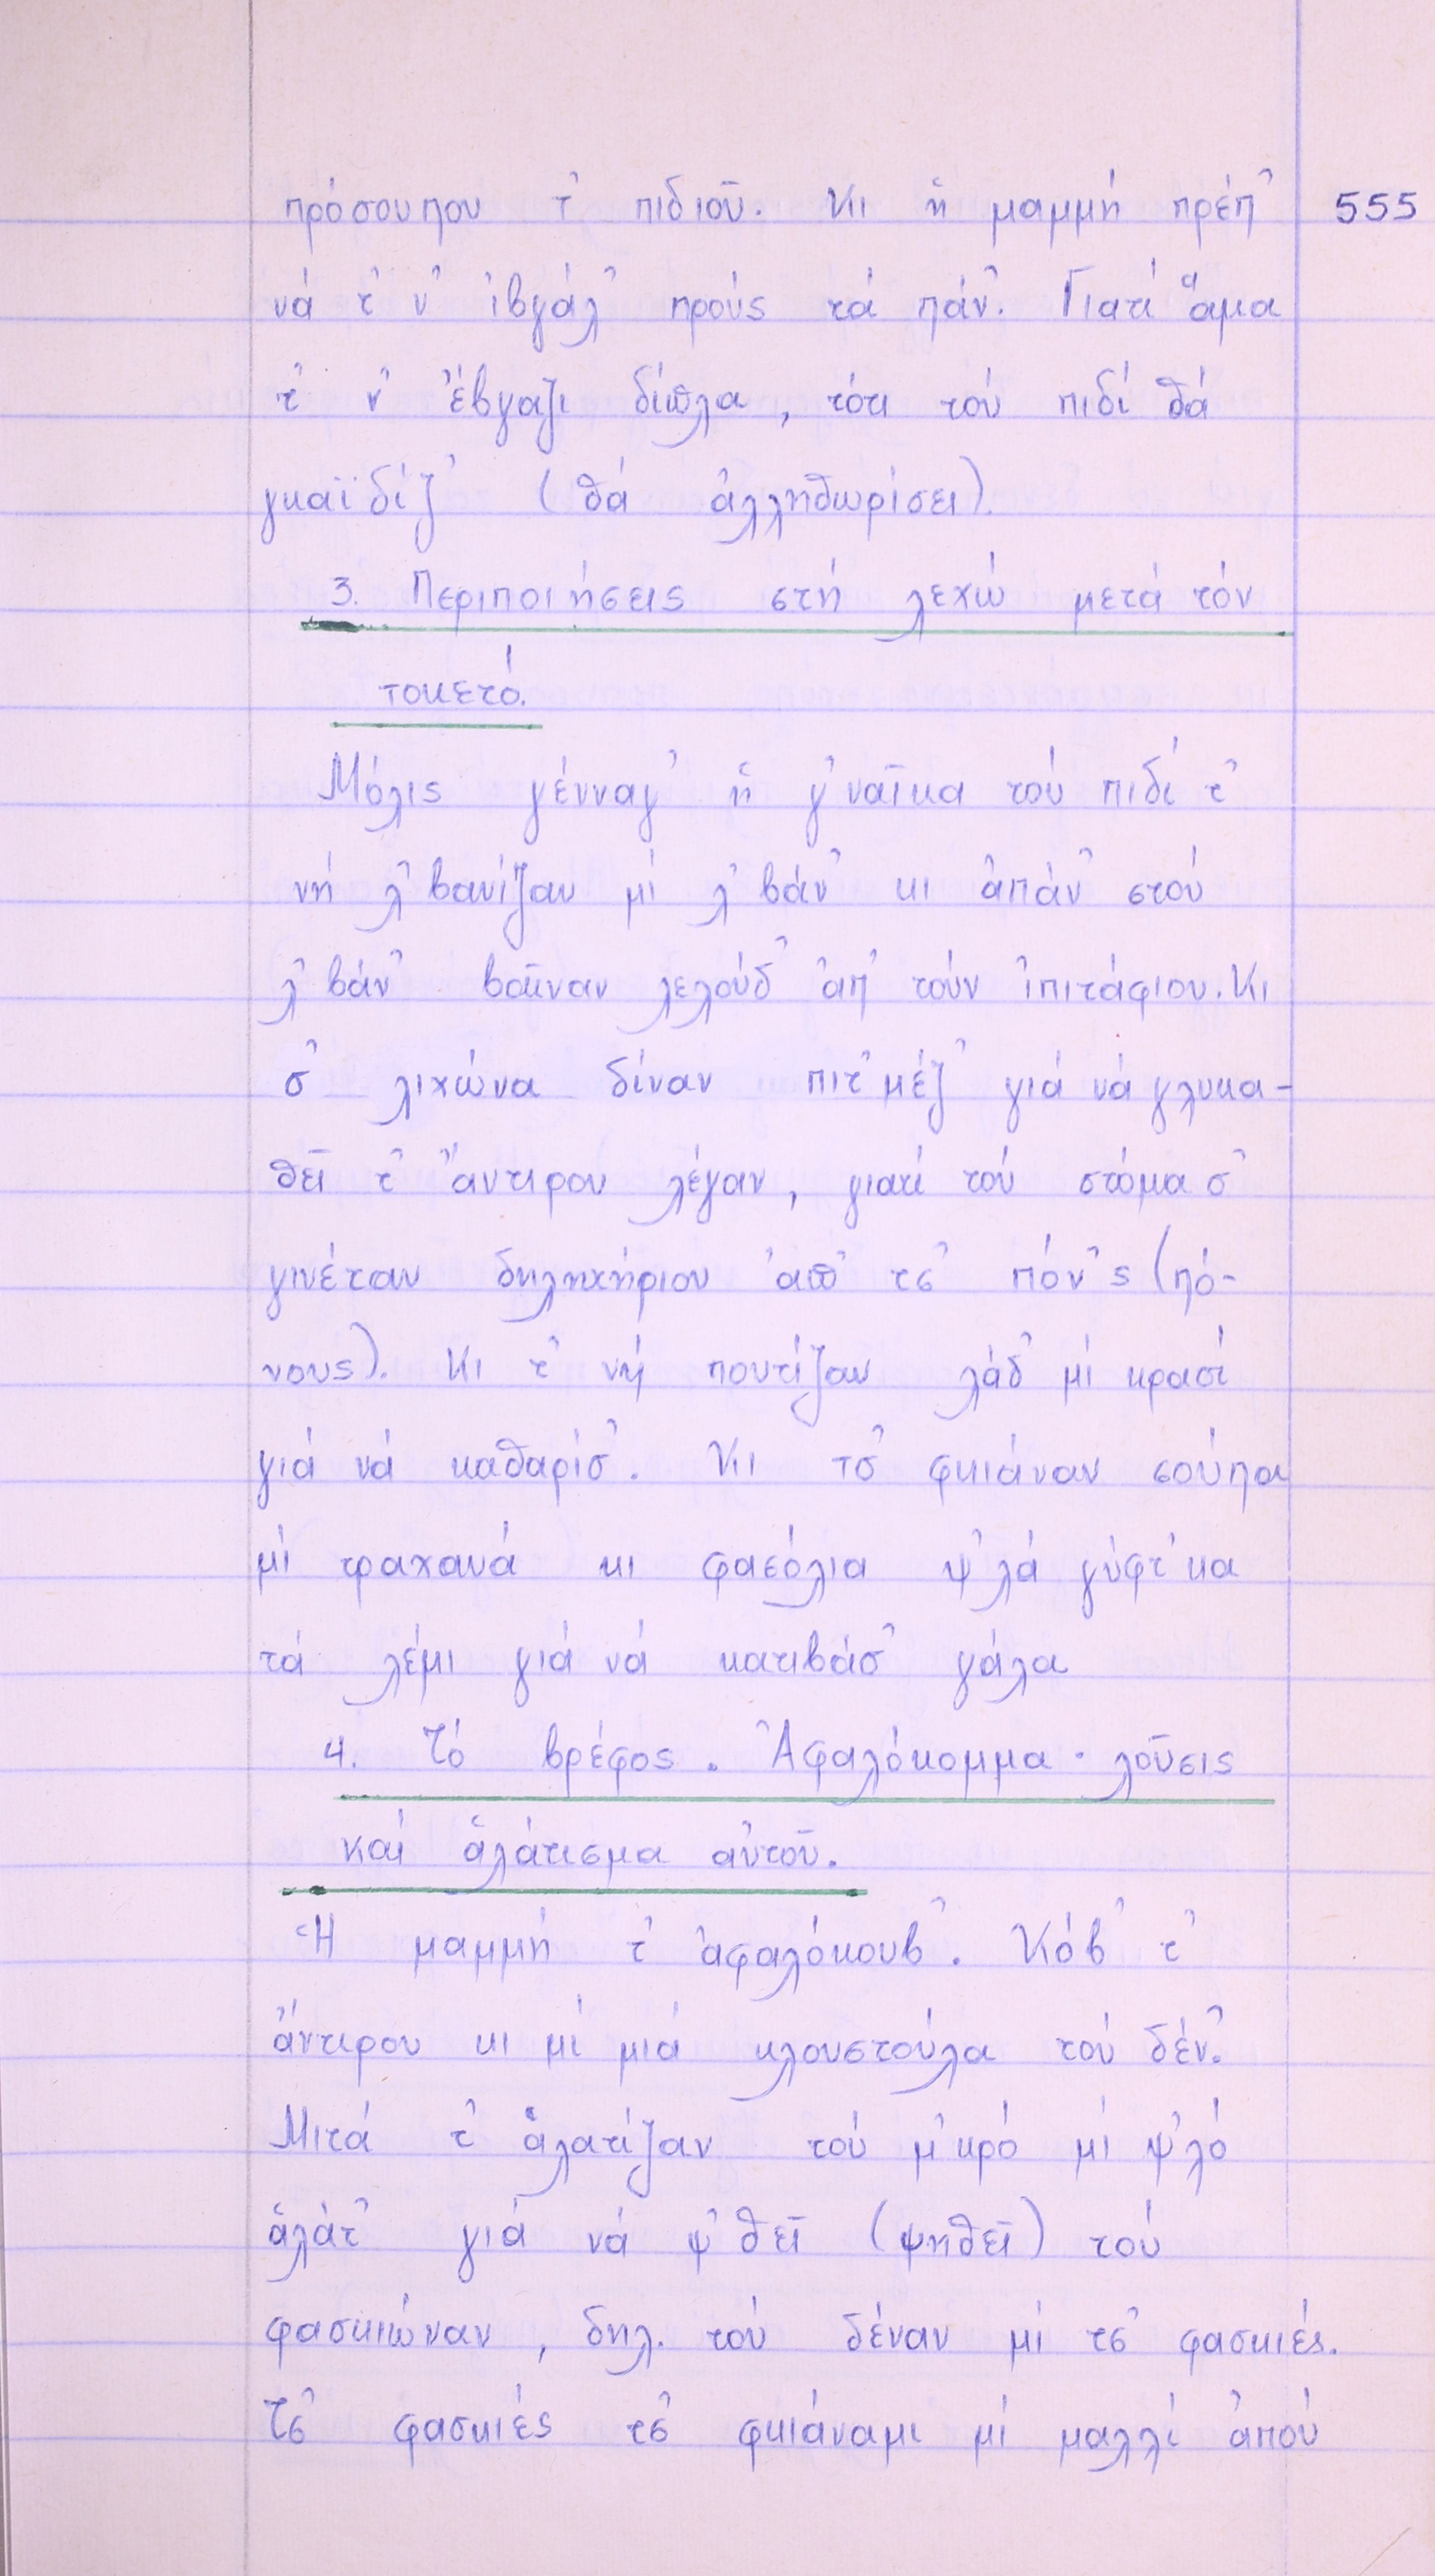 πρόσουπου τ' πιδιοῦ. Κι ἡ μαμμή πρέπ' 555
νά τ' ν' ἰβγάλ' προύς τά πάν'. Γιατί ἅμα
τ' ν' ἔβγαζι δίπλα, τότι τού πιδί θά
γκαϊδίζ' (θά ἀλληθωρίσει).
3. Περιποιήσεις στή λεχώ μετά τόν
τοκετό.
Μόλις γένναγ' ἡ γ'ναῖκα τού πιδί τ'
νή λ'βανίζαν μί λ'βάν' κι ἀπάν' στού
λ'βάν' βαῖναν λελούδ' ἀπ' τούν ἰπιτάφιου. Κι
σ' λιχώνα δίναν πιτ'μέζ' γιά νά γλυκα-
θεῖ τ' ἄντιρου λέγαν, γιατί τού στόμα σ'
γινέταν δηλητήριου ἀπ' τσ' πόν'ς (πό-
νους). Κι τ' νή πουτίζαν λάδ' μί κρασί
γιά νά καθαρίσ'. Κι τσ' φκιάναν σούπα
μί τραχανά κι φασόλια ψ'λά γύφτ'κα
τά λέμι γιά νά κατιβάσ' γάλα
4. Τό βρέφος. Ἀφαλόκομμα · λοῦσις
καί ἁλάτισμα αὐτοῦ.
Ἡ μαμμή τ' ἀφαλόκουβ'. Κόβ' τ'
ἄντιρου κι μί μιά κλουστούλα τού δέν'.
Μιτά τ' ἁλατίζαν τού μ'κρό μί ψ'λό
ἁλάτ' γιά νά ψ'θεῖ (ψηθεῖ) τού
φασκιώναν, δηλ. τού δέναν μί τσ' φασκιές.
Τσ' φασκιές τσ' φκιάναμι μί μαλλί ἀπού